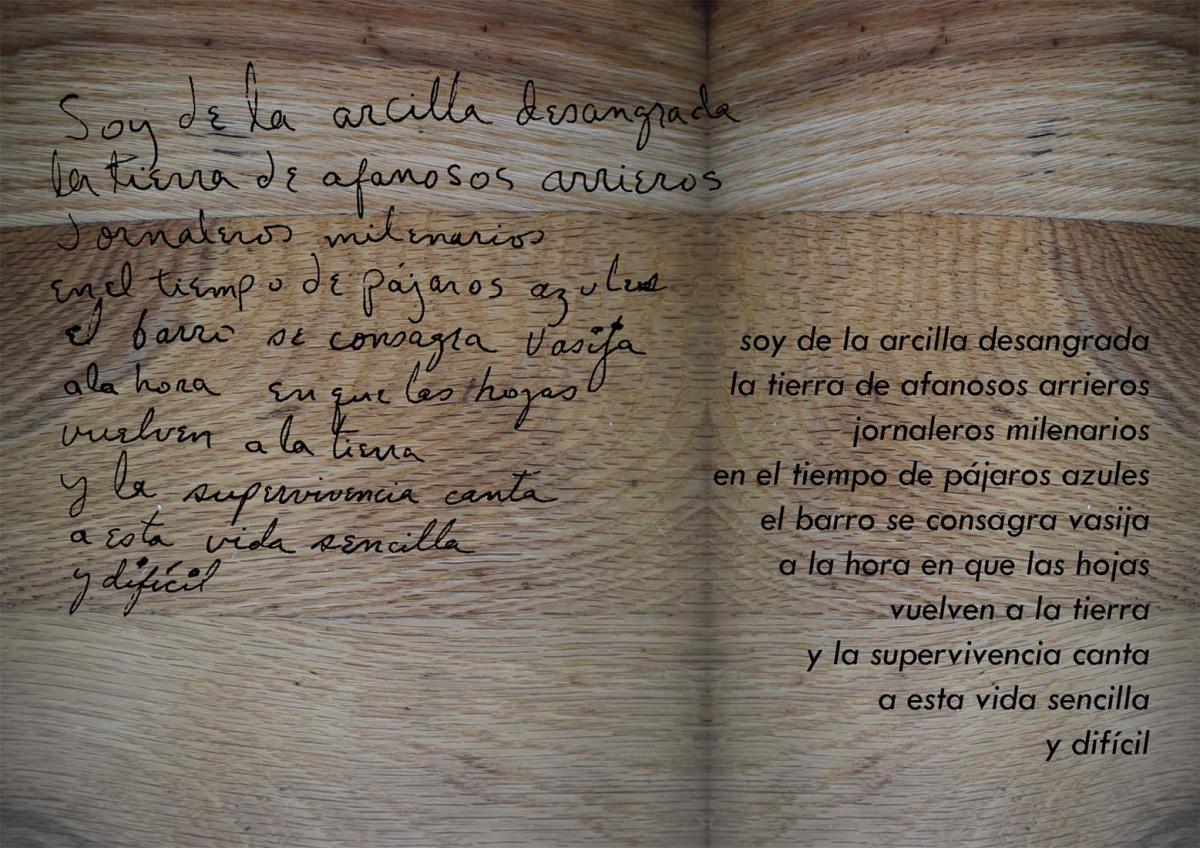 Soy de la arcilla desangrada
la tierra de afanosos arrieros
Jornaleros milenarios
en el tiempo de pájaros azules
el barro se consagra vasija
a la hora en que las hojas
vuelven a la tierra
y la supervivencia canta
a esta vida sencilla
y difícil
soy de la arcilla desangrada
la tierra de afanosos arrieros
jornaleros milenarios
en el tiempo de pájaros azules
el barro se consagra vasija
a la hora en que las hojas
vuelven a la tierra
y la supervivencia canta
a esta vida sencilla
y difícil